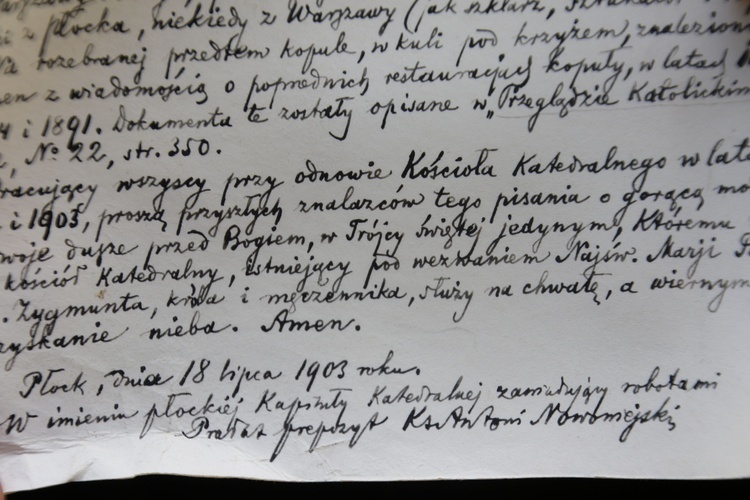 z Płocka, niekiedy z Warszawy (jak szklarz,
rozebranej przedtem kopule, w kuli pod krzyżem, znaleziono
z wiadomością o poprzednich restauracjach kopuły, w latach
i 1891. Dokumenta te zostały opisane w „Przeglądzie Katolickim
No 22, str. 350.
racujący wszyscy przy odnowie Kościoła Katedralnego w lata
i 1903, proszą przyszłych znalazców tego pisania o gorącą mo
woje dusze przed Bogiem, w Trójcy Świętej jedynym, Któremu
kościół Katedralny, istniejący pod wezwaniem Najśw. Marji
. Zygmunta, króla i męczennika, służy na chwałę, a wiernym
zyskanie nieba. Amen.
Płock, dnia 18 lipca 1903 roku.
W imieniu płockiej Kapituły Katedralnej zawiadujący robotami
Prałat prepozyt Ks. Antoni Nowowiejski